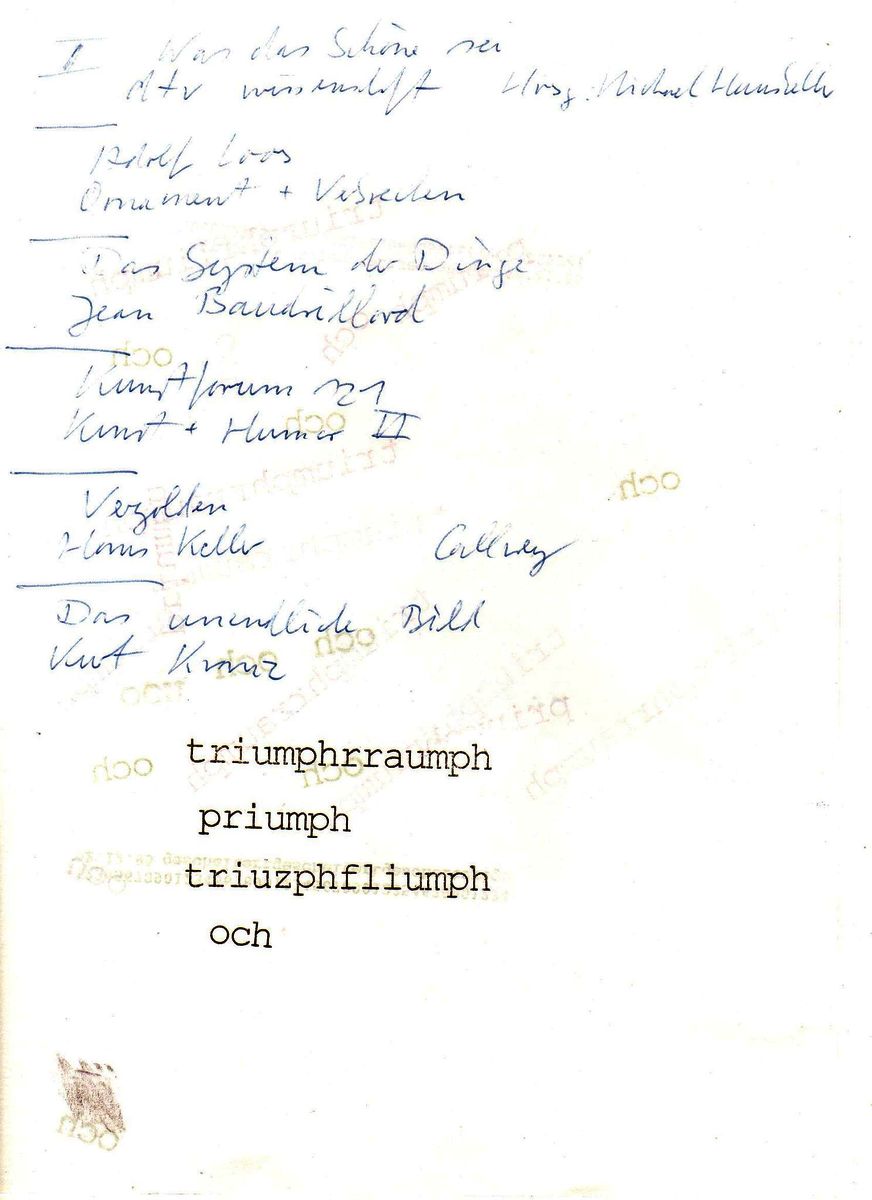 II Was das Schöne sei
dtv wissenschaft Hrsg. Michael Hauskeller
Adolf Loos
Ornament + Verbrechen
Das System der Dinge
Jean Baudrillard
Kunstforum 121
Kunst + Humor II
Vergolden
Hans Keller Callwey
Das unendliche Bild
Kurt Kranz
triumphrraumph
priumph
triuzphfliumph
och